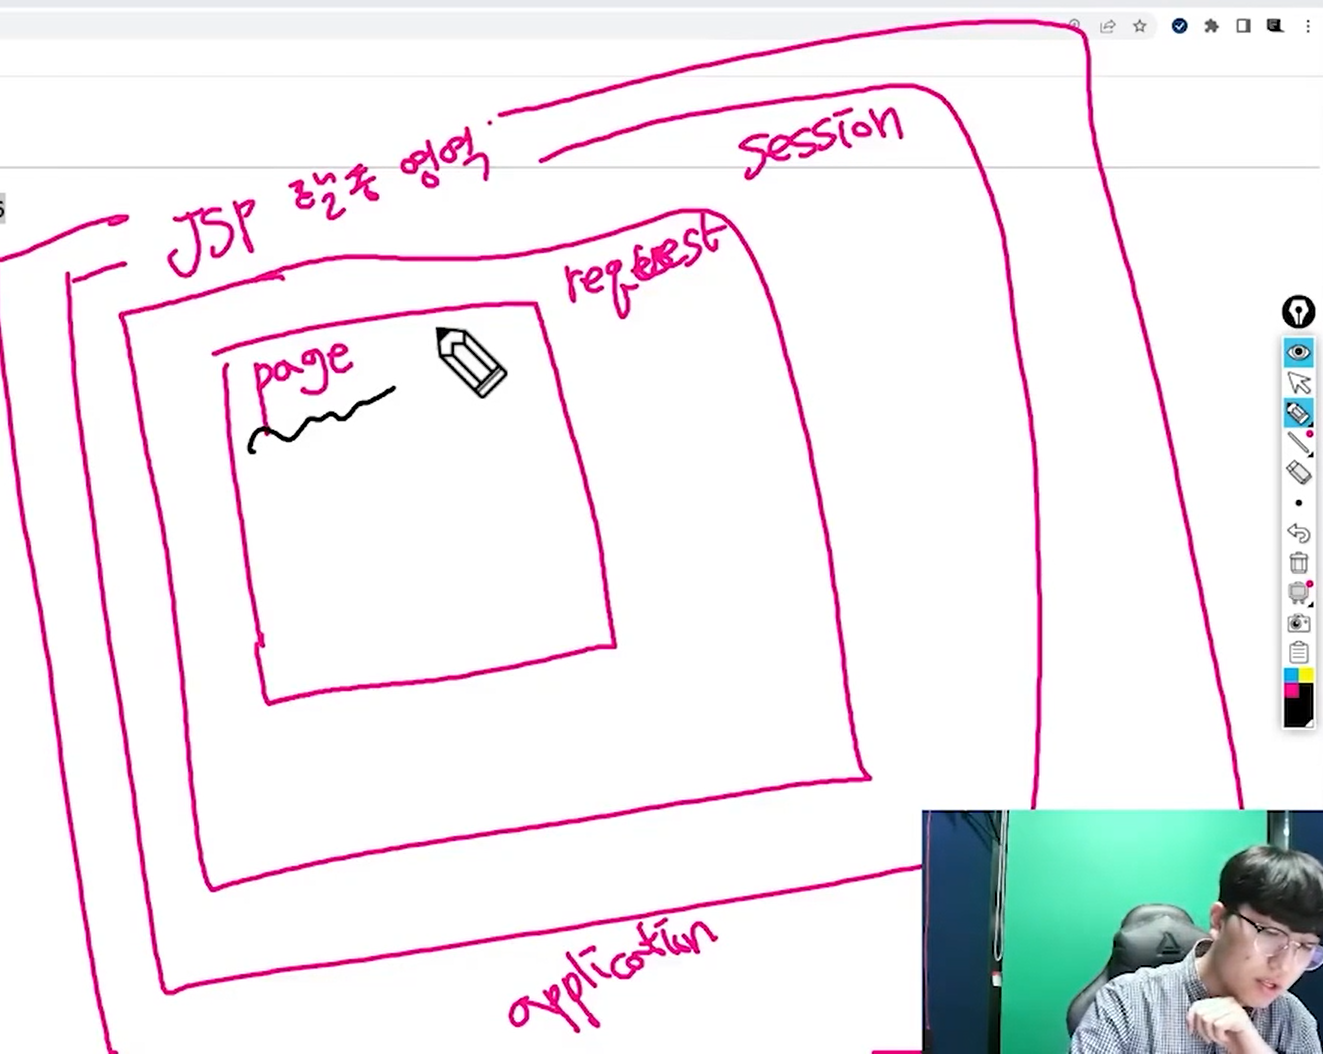 JSP 활동 영역
session
request
page
application